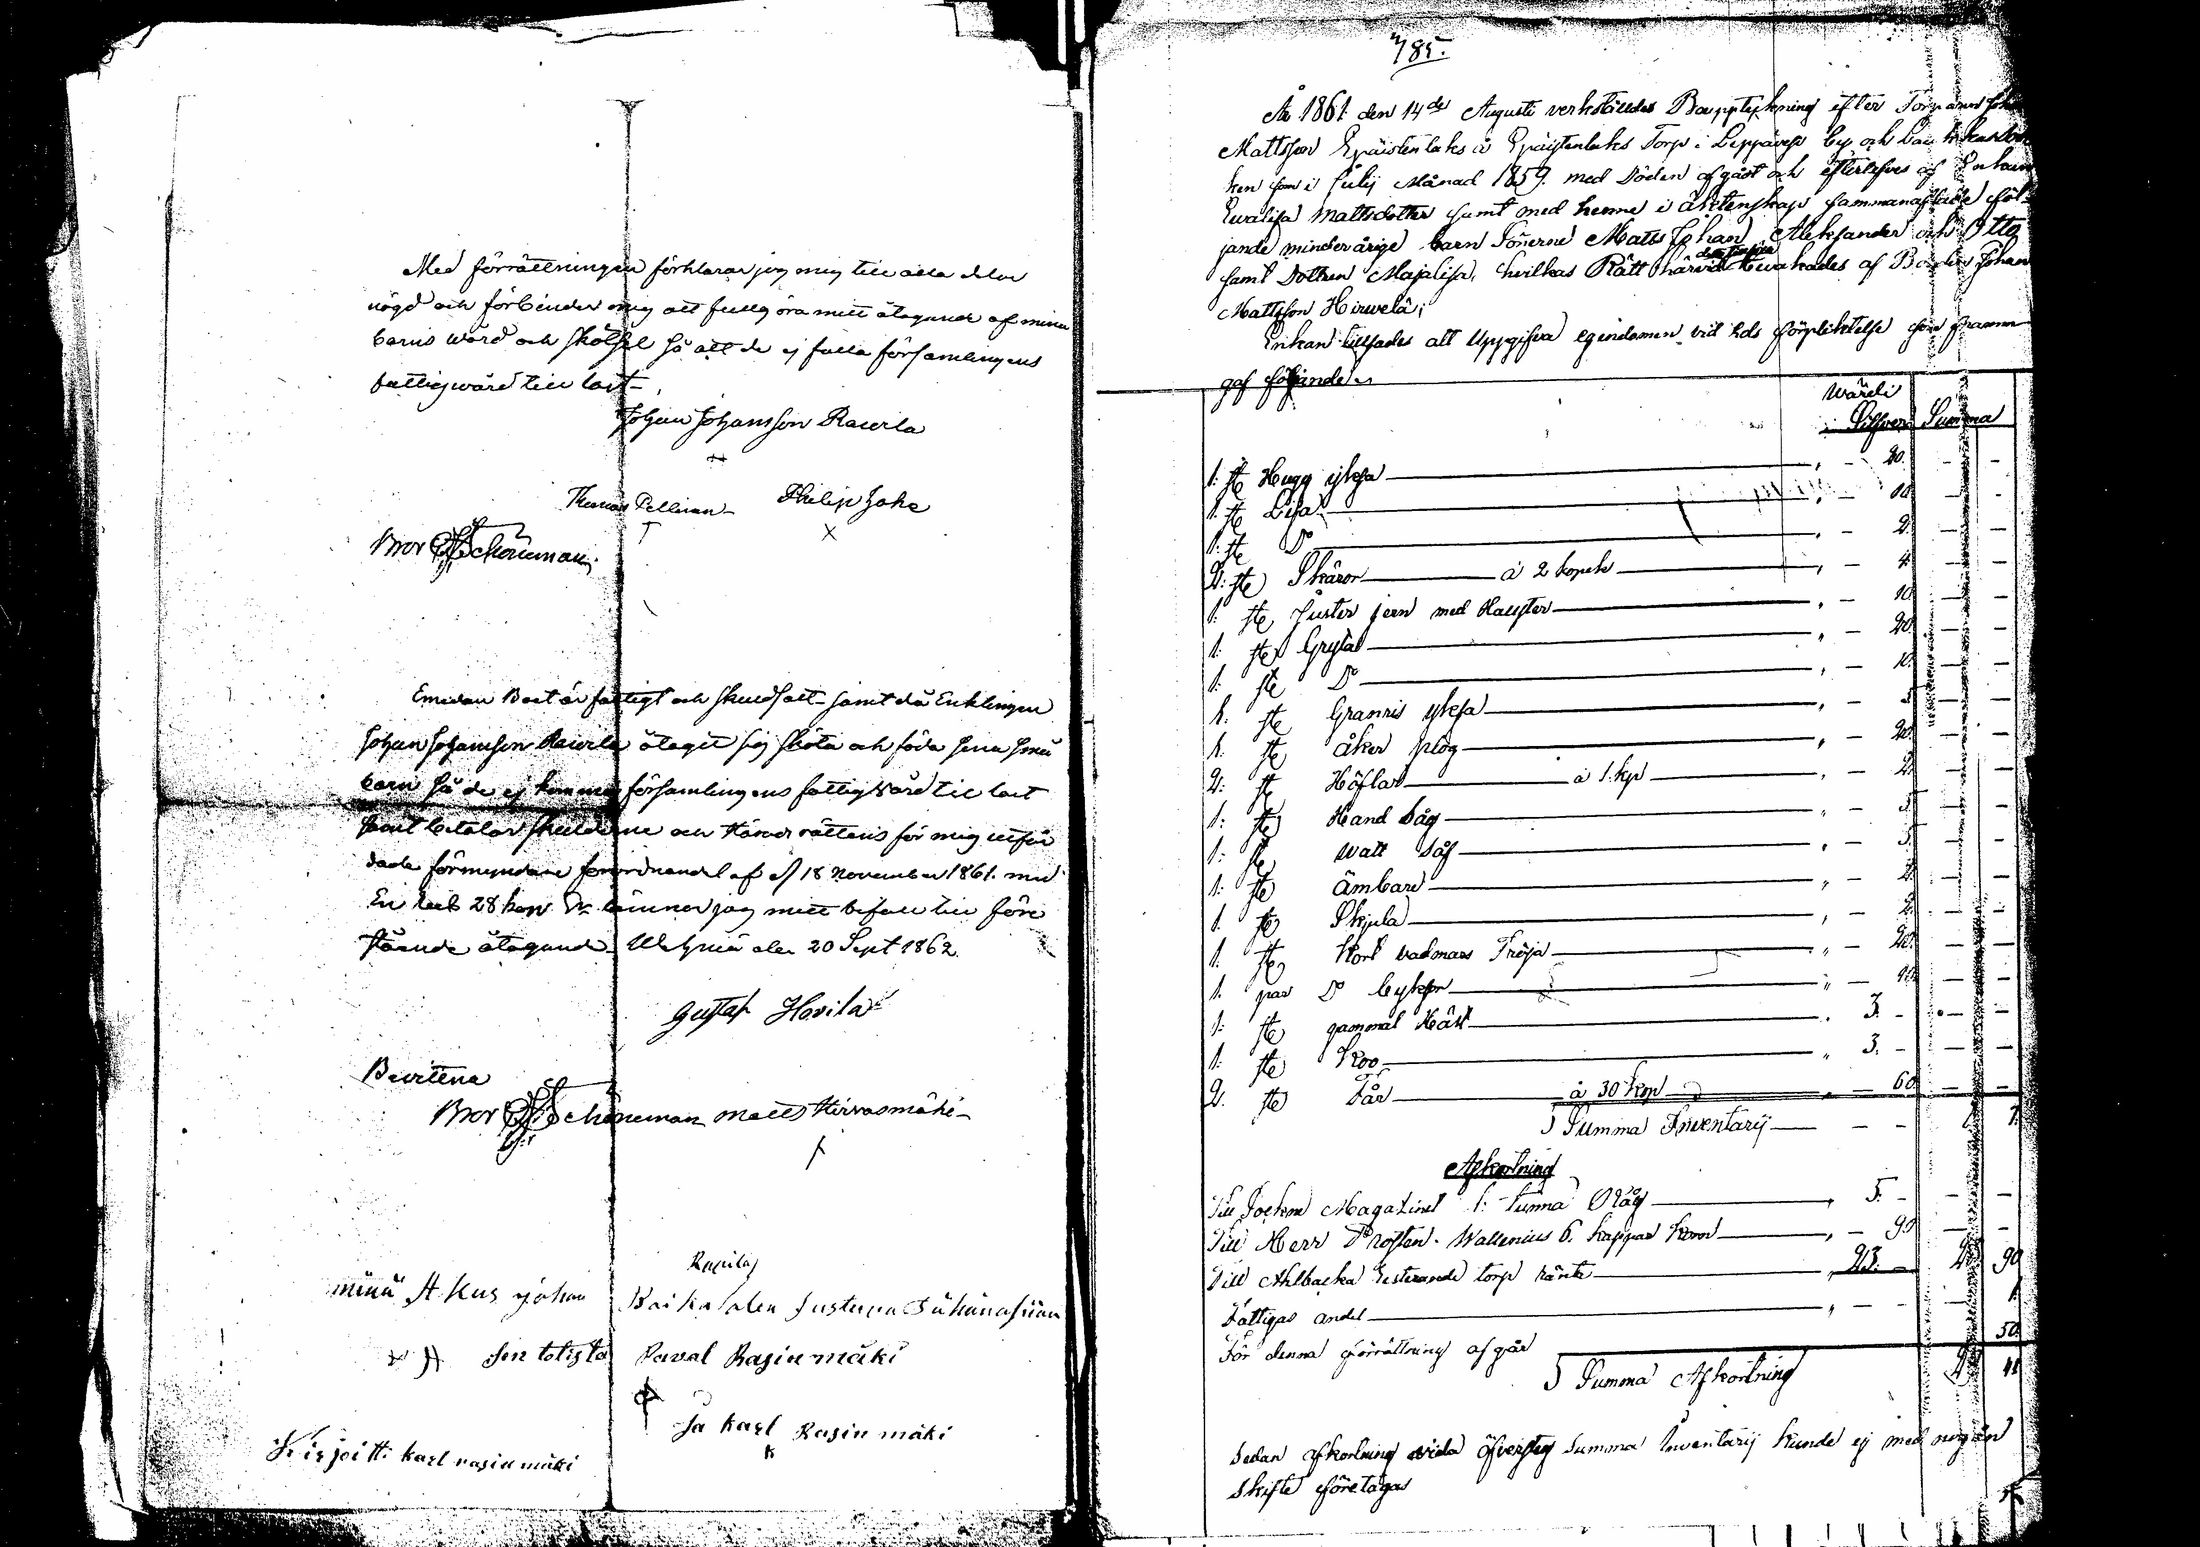 Med förrättningen förklarar jag mig till alla delar
nögd och förbinder mig att fullgöra mitt åtagande af mina
barns wård och skötsel så att de ej falla församlingens
fattigwård till last
Johan Johansson Rawila
Thomas Pellinen Philip Joke
Bror Schöneman
Emedan Boet är fattigt och skuldsatt samt då Enklingen
Johan Johansson Rawila åtagit sig sköta och föda sina små
barn så de ej komma församlingens fattigwård till last
samt betalar skulderne och Häradsrättens för mig utfär
dade förmyndare förordnande af d/ 18 November 1861 med
En rub 28 kop Sr lämnar jag mitt bifall till före
stående åtagande den 20 Sept 1862
Gustaf Hovila
Bevittna
Bror Schöneman Matts Hirvasmäki
Ravila
minä A Kus johan
sen totista Paval Rasinmäki
Ja karl Rasinmäki
Kirjoitti karl rasinmäki
785.
År 1861 den 14de Augusti verkställdes Boupptekning efter Torparen Johan
Mattsson Epäistenlaks å Epäistenlaks Torp i Leppävesi by och
ken som i Julij Månad 1859. med Döden afgått och efterlefves af Enkan
Ewalisa Mattsdotter samt med henne i äktenskap sammanaflade föl-
jande minderårige barn Sönerne Matts Johan, Aleksander och Otto
samt Dottren Majalisa, hvilkas Rätt härvid bevakades af Bonden Johan
Mattsson Hirwelä;
Enkan tillsades att Uppgifva egendomen vid Eds förpliktelse som fram
gaf följande
Wärde
i Silfver Summa
1. st Hugg yksa 20.
1. st Lisa 10
1. st Do 2.
2. st Skäror à 2 kopek 4
1. st Juster jern med Halster 10
1. st Gryta 20
1. st Do 10.
1. st Granris yksa 5
1. st åker plog 20.
2. st Höflar à 1. kp 2.
1. st Hand såg 5
1. st Watt Såg 5.
1. st ämbare 2.
1. st Skjula 2.
1. st kort vadmars Tröja 20.
1. par Do byksor 10
1. st gammal Häst 3. -
1. st Koo 3. -
2. st Får à 30 kop 60
Summa Inventarij
Afkortning
Till Sockne Magazinet 1. Tunna Råg 5. -
Till Herr Prosten Wallenius 6. kappar korn 90
Till Ahlbacka resterande torp ränta 23. - 28 90
Fattigas andel 1
För denna förrättning afgår 50
Summa Afkortning
Sedan afkortning vida öfversteg Summa Inventarij kunde ej med någon
Skifte företagas